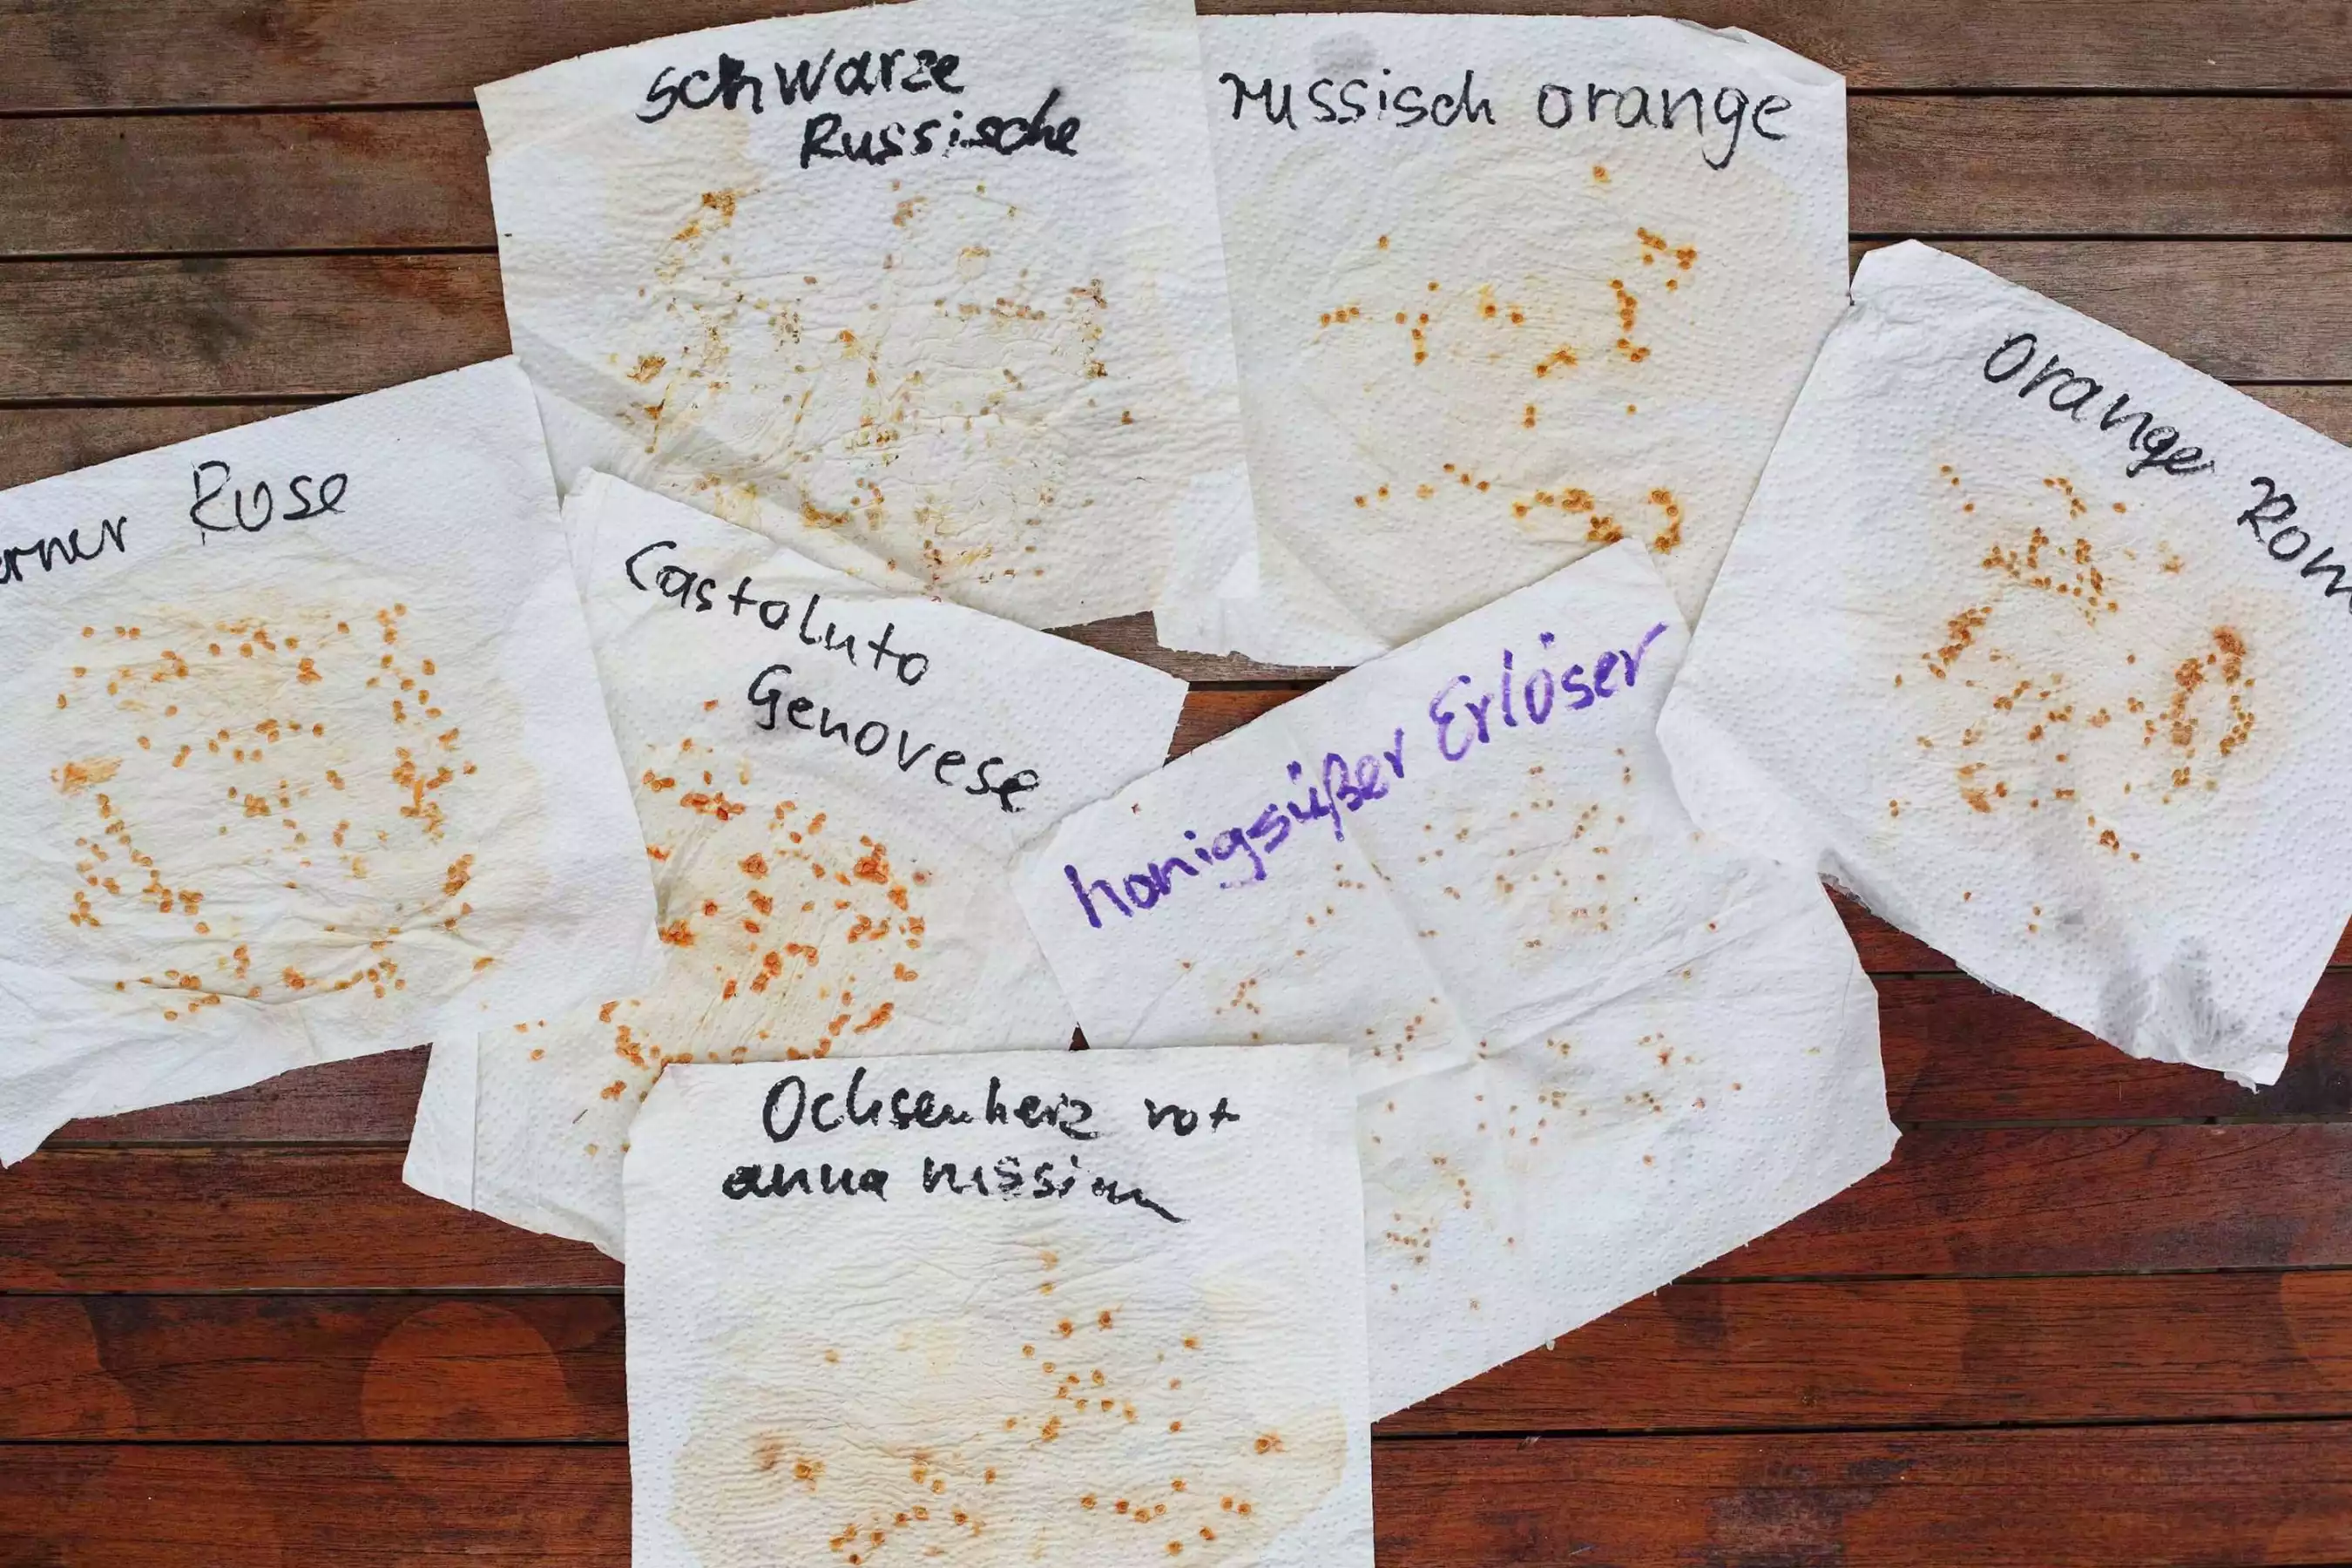 schwarze
Russische
russisch orange
orange Rom
erner Rose
Costoluto
Genovese
honigsüßer Erlöser
Ochsenherz rot
anna russian